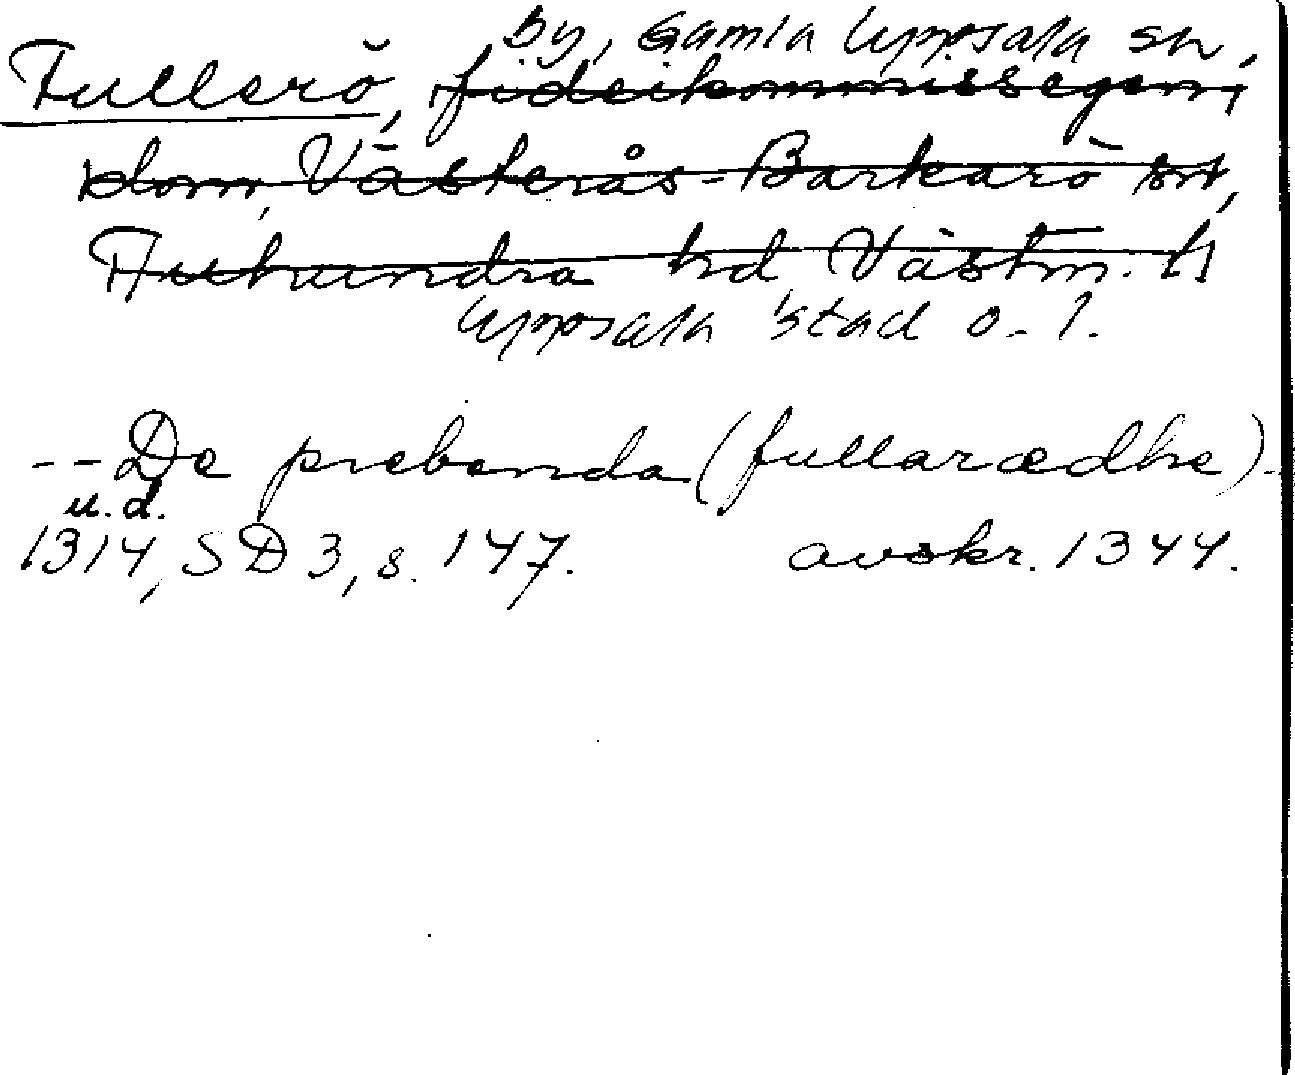 by, Gamla Uppsala sn,
Fullerö, fideikommissegen,
dom, Västerås-Barkarö sn,
Tuhundra hd Västm. l
Uppsala stad o. l.
-- De prebenda (fullarædhe) -
u.d.
1314, SD 3, s. 147. avskr. 1344.